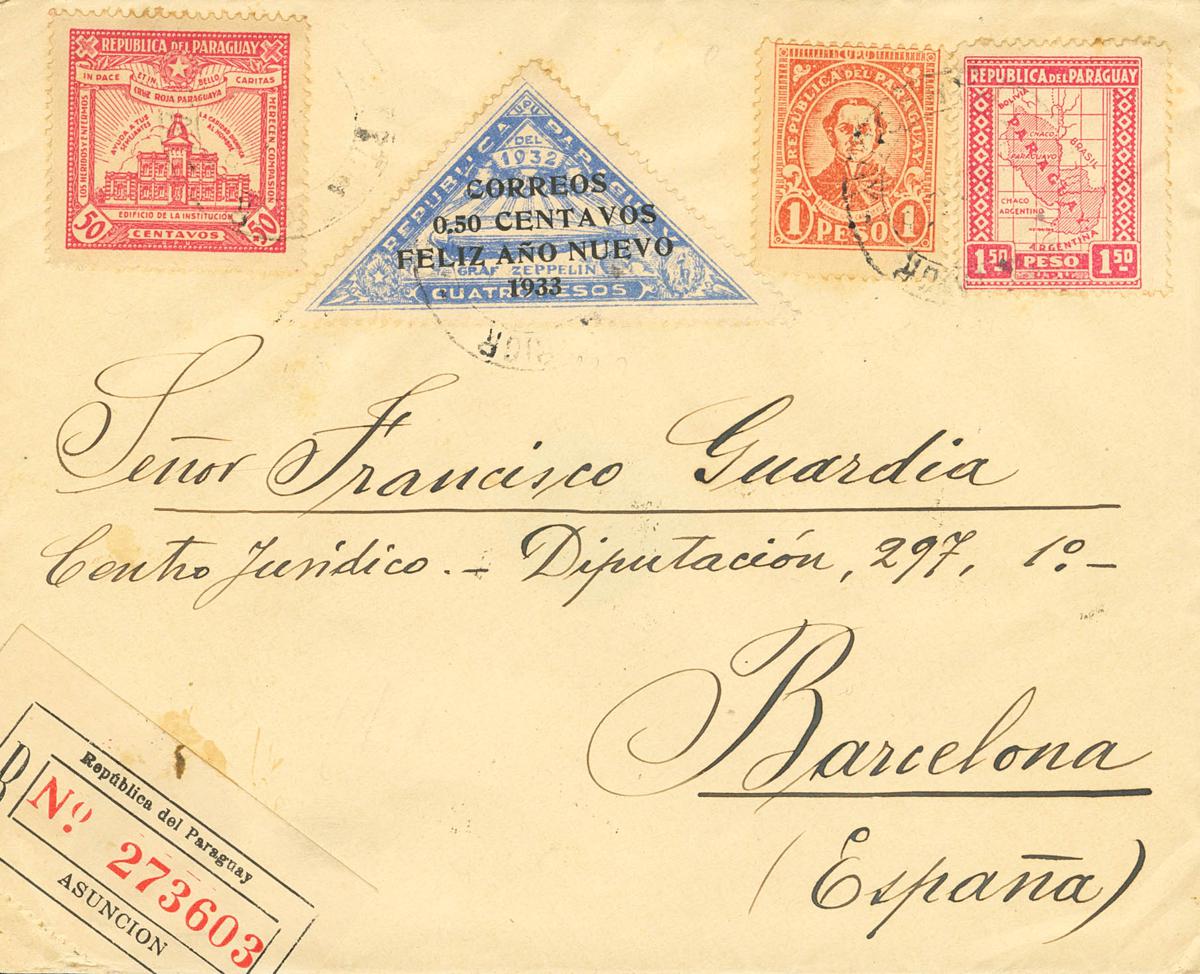 REPUBLICA DEL PARAGUAY
IN PACE ET IN BELLO CARITAS
CRUZ ROJA PARAGUAYA
LOS HERIDOS Y ENFERMOS
MERECEN COMPASION
EDIFICIO DE LA INSTITUCIÓN
50 CENTAVOS 50
UPU
REPUBLICA DEL PARAGUAY
1932
CORREOS
0.50 CENTAVOS
FELIZ AÑO NUEVO
GRAF ZEPPELIN
1933
CUATRO PESOS
U.P.U.
REPUBLICA DEL PARAGUAY
1 PESO 1
REPUBLICA DEL PARAGUAY
BOLIVIA
PARAGUAY
CHACO
PARAGUAYO
BRASIL
CHACO
ARGENTINO
ARGENTINA
1.50 PESO 1.50
Señor Francisco Guardia
Centro Jurídico. – Diputación, 297, 1º –
Barcelona
(España)
R
República del Paraguay
Nº. 273603
ASUNCION